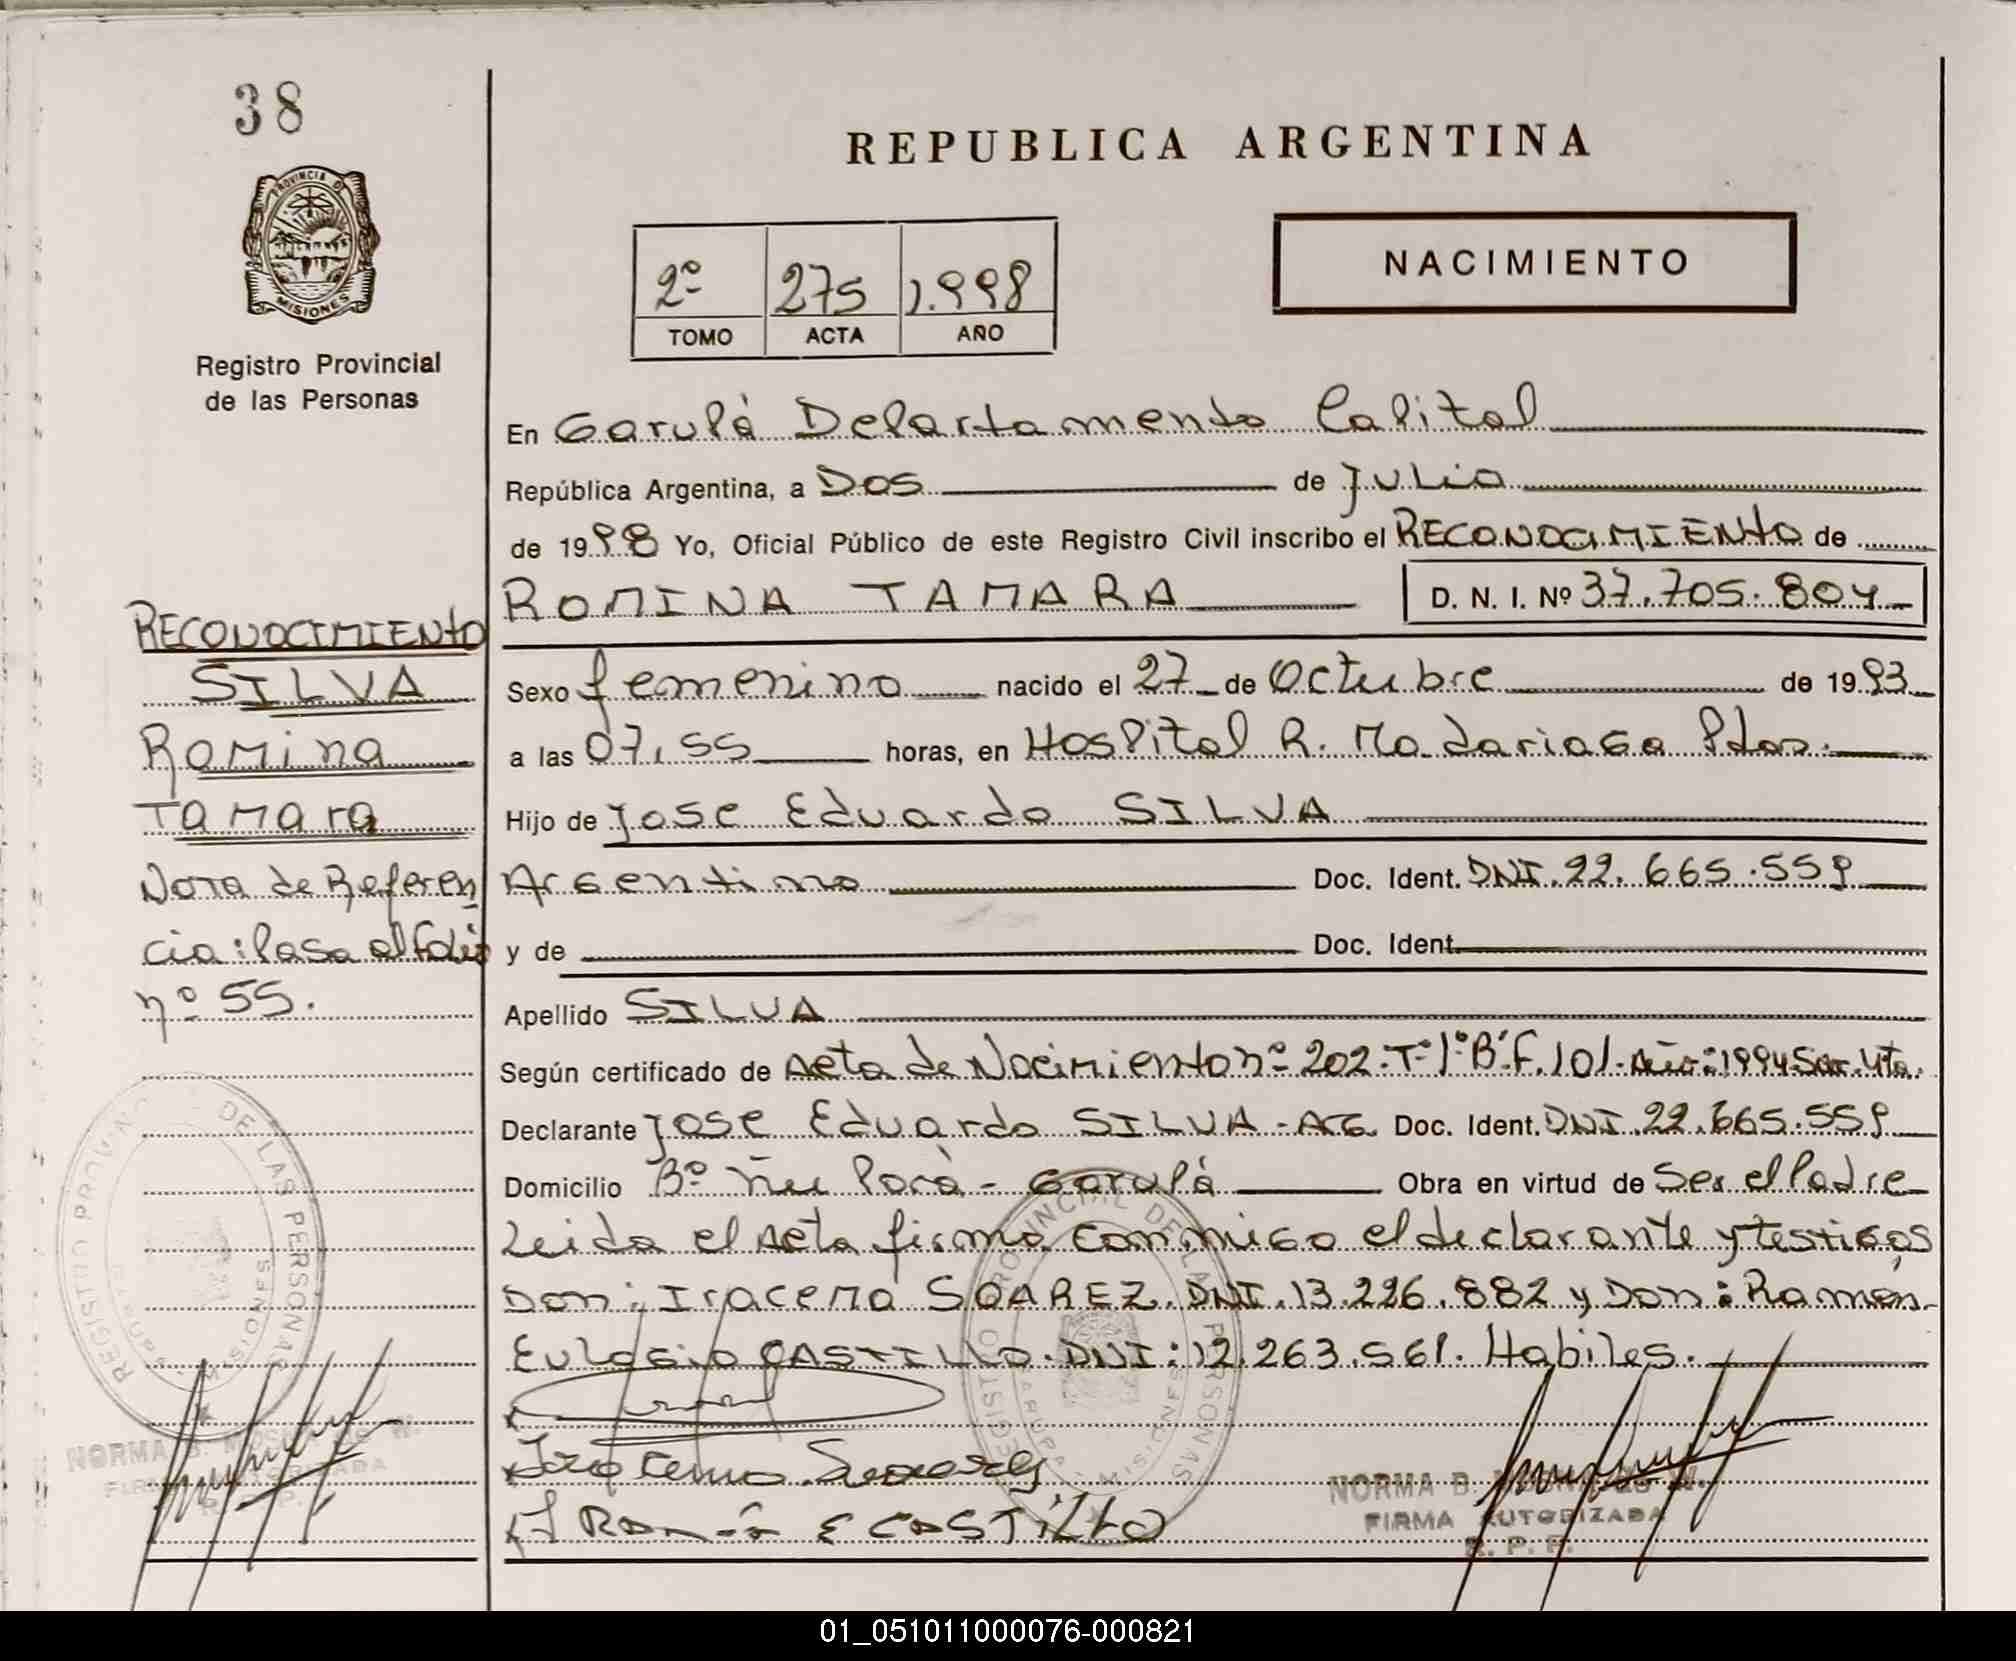 38
PROVINCIA DE
MISIONES
Registro Provincial
de las Personas
REPUBLICA ARGENTINA
NACIMIENTO
2º 275 1.998
TOMO ACTA AÑO
En Garupá Departamento Capital
República Argentina, a Dos de Julio
de 1998 Yo, Oficial Público de este Registro Civil inscribo el RECONOCIMIENTO de
ROMINA TAMARA D. N. I. Nº 37.705.804
RECONOCIMIENTO
SILVA
Romina
Tamara
Nota de Referen
cia: Pasa al folio
nº 55.
Sexo femenino nacido el 27 de Octubre de 1993
a las 07,55 horas, en Hospital R. Madariaga Pdas.
Hijo de Jose Eduardo SILVA
Argentino Doc. Ident. DNI. 22.665.559
y de Doc. Ident.
Apellido SILVA
Según certificado de Acta de Nacimiento nº 202. Tº 1º B. F. 101. Año: 1994. Sar. Yta.
Declarante Jose Eduardo SILVA - ARG Doc. Ident. DNI. 22.665.559
Domicilio Bº Ñu Porá - Garupá Obra en virtud de Ser el Padre
Leida el Acta firma conmigo el declarante y testigos
Don: Iracema SOAREZ. DNI. 13.226.882 y Don: Ramón
Eulogio CASTILLO. DNI: 12.263.561. Habiles.
REGISTRO PROVINCIAL DE LAS PERSONAS
GARUPA - MISIONES
Ramón E CASTILLO
NORMA B. W.
FIRMA AUTORIZADA
R. P. P.
REGISTRO PROVINCIAL DE LAS PERSONAS
MISIONES
NORMA B. W.
FIRMA AUTORIZADA
01_051011000076-000821